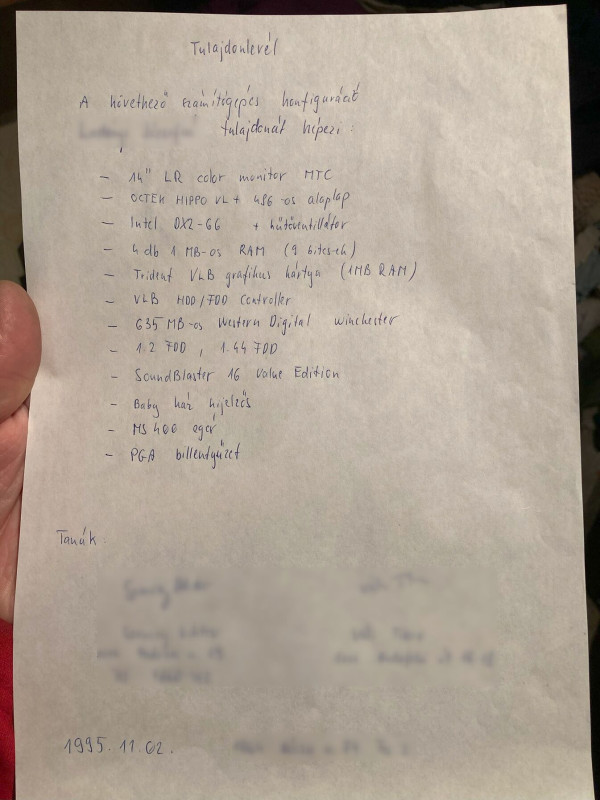 Tulajdonlevél
A következő számítógépés konfiguráció
tulajdonát képezi :
- 14" LR color monitor MTC
- OCTEK HIPPO VL+ 486-os alaplap
- Intel DX2-66 + hűtőventillátor
- 4 db 1 MB-os RAM (9 bitesek)
- Trident VLB grafikus kártya (1MB RAM)
- VLB HDD/FDD Controller
- 635 MB-os Western Digital winchester
- 1.2 FDD , 1.44 FDD
- SoundBlaster 16 Value Edition
- Baby ház kijelzős
- MS 400 egér
- PGA billentyűzet
Tanúk
1995. 11. 02.